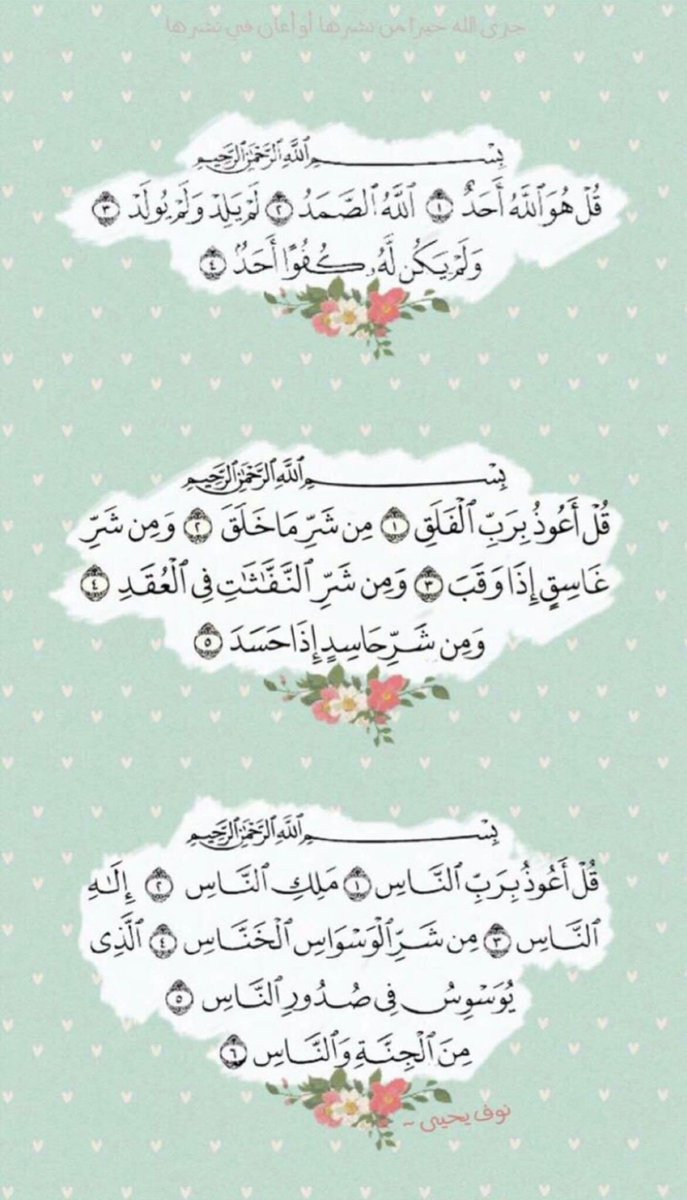 جزى الله خيرا من نشرها أو أعان في نشرها
بِسْمِ ٱللَّهِ ٱلرَّحْمَٰنِ ٱلرَّحِيمِ
قُلْ هُوَ ٱللَّهُ أَحَدٌ ١ ٱللَّهُ ٱلصَّمَدُ ٢ لَمْ يَلِدْ وَلَمْ يُولَدْ ٣
وَلَمْ يَكُن لَّهُۥ كُفُوًا أَحَدٌۢ ٤
بِسْمِ ٱللَّهِ ٱلرَّحْمَٰنِ ٱلرَّحِيمِ
قُلْ أَعُوذُ بِرَبِّ ٱلْفَلَقِ ١ مِن شَرِّ مَا خَلَقَ ٢ وَمِن شَرِّ
غَاسِقٍ إِذَا وَقَبَ ٣ وَمِن شَرِّ ٱلنَّفَّٰثَٰتِ فِى ٱلْعُقَدِ ٤
وَمِن شَرِّ حَاسِدٍ إِذَا حَسَدَ ٥
بِسْمِ ٱللَّهِ ٱلرَّحْمَٰنِ ٱلرَّحِيمِ
قُلْ أَعُوذُ بِرَبِّ ٱلنَّاسِ ١ مَلِكِ ٱلنَّاسِ ٢ إِلَٰهِ
ٱلنَّاسِ ٣ مِن شَرِّ ٱلْوَسْوَاسِ ٱلْخَنَّاسِ ٤ ٱلَّذِى
يُوَسْوِسُ فِى صُدُورِ ٱلنَّاسِ ٥
مِنَ ٱلْجِنَّةِ وَٱلنَّاسِ ٦
نوف يحيى ~